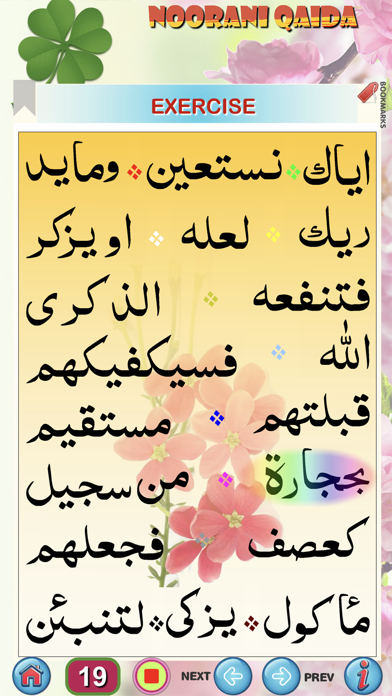 NOORANI QAIDA
BOOKMARKS
EXERCISE
اياك نستعين ومايد
ريك لعله او يزكر
فتنفعه الذكرى
الله فسيكفيكهم
قبلتهم مستقيم
بحجارة من سجيل
كعصف فجعلهم
مأكول يزكى لتنبئن
19 NEXT PREV i